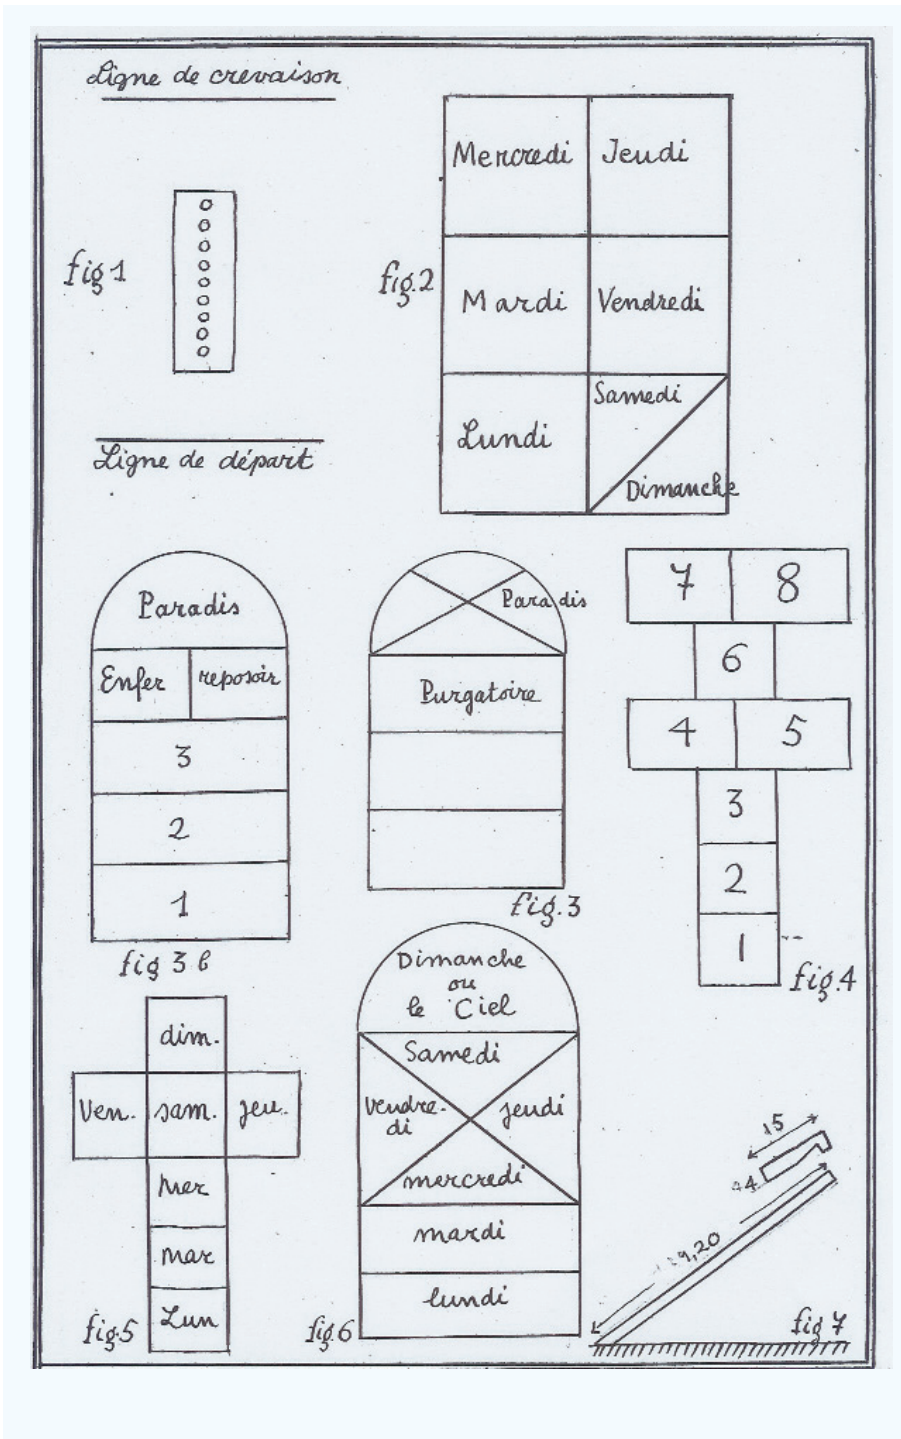 Ligne de crevaison
fig 1
Ligne de départ
fig.2
Mercredi Jeudi
Mardi Vendredi
Lundi
Samedi
Dimanche
Paradis
Enfer reposoir
3
2
1
fig 3 b
Paradis
Purgatoire
fig.3
7 8
6
4 5
3
2
1
fig.4
dim.
Ven. sam. jeu.
Mer
mar
Lun
fig.5
Dimanche
ou
le Ciel
Samedi
Vendre-
di
jeudi
mercredi
mardi
lundi
fig.6
15
9,20
fig 7